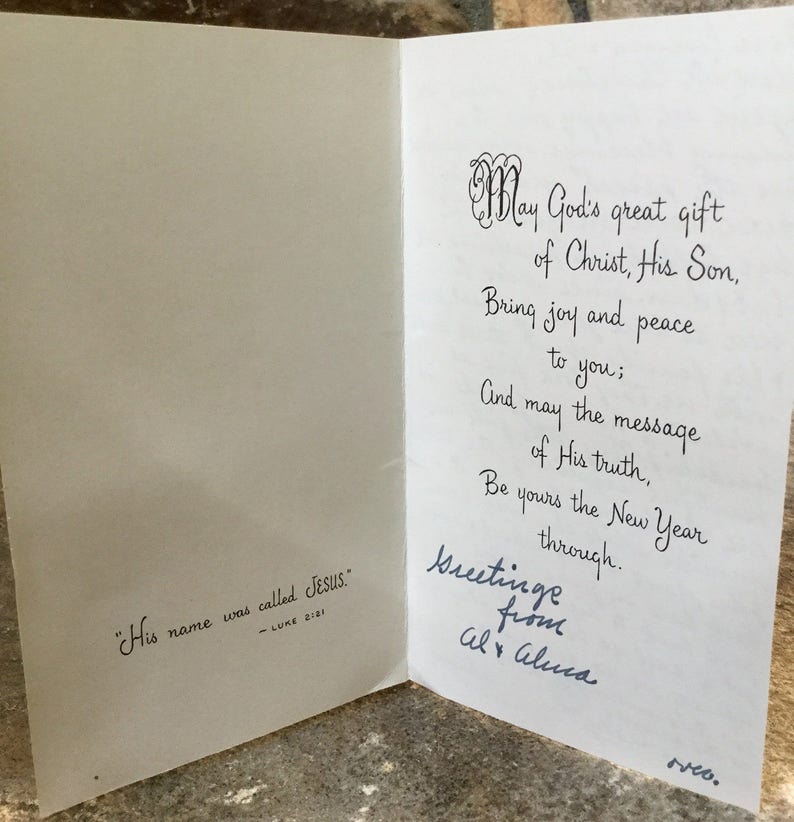 "His name was called JESUS."
~ LUKE 2:21
May God's great gift
of Christ, His Son,
Bring joy and peace
to you;
And may the message
of His truth,
Be yours the New Year
through.
Greetings
from
Al & Alma
over.